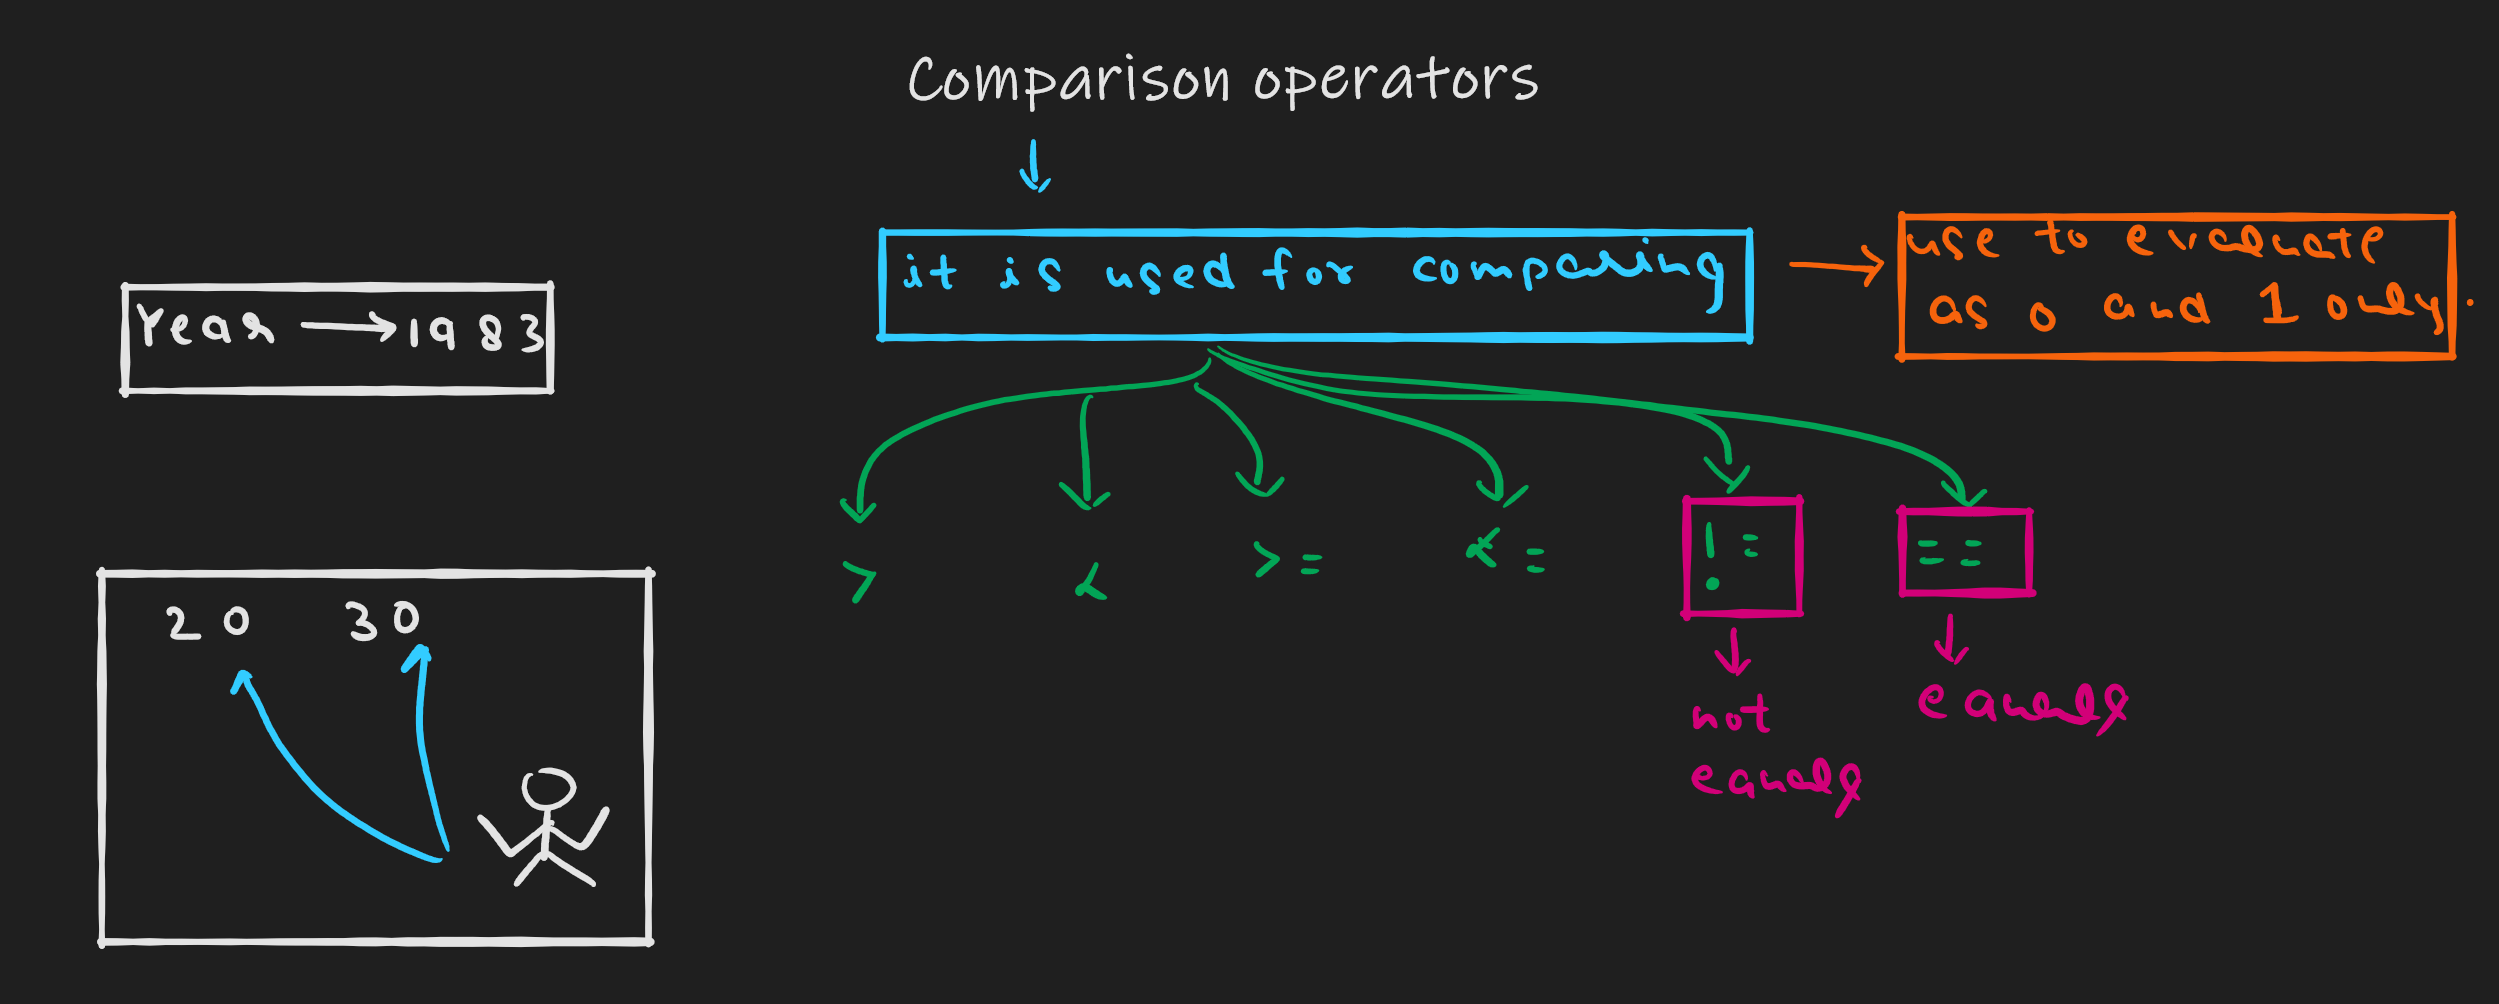 Comparison operators
it is used for comparing
use to evaluate
as 0 and 1 only.
Year → 1983
> < >= <= != ==
20 30
not
equals
equals